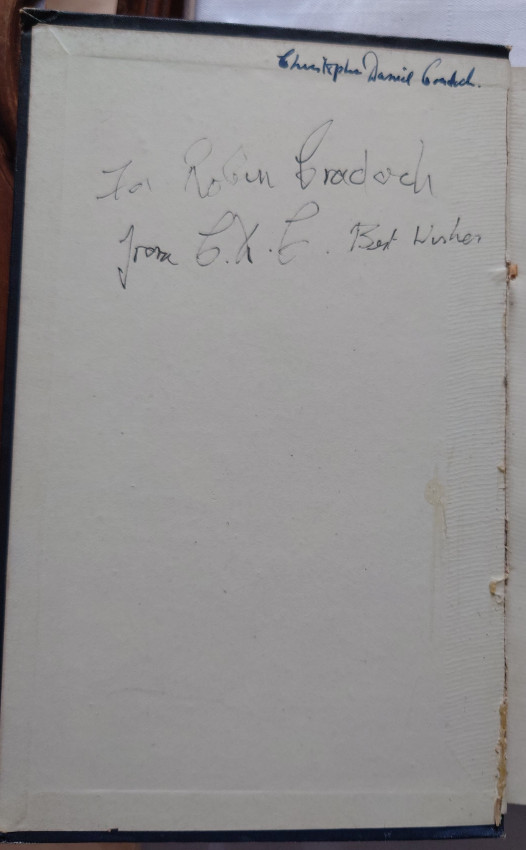 Christopher Daniel Cradock.
For Robin Cradock
from C.X.C. Best Wishes